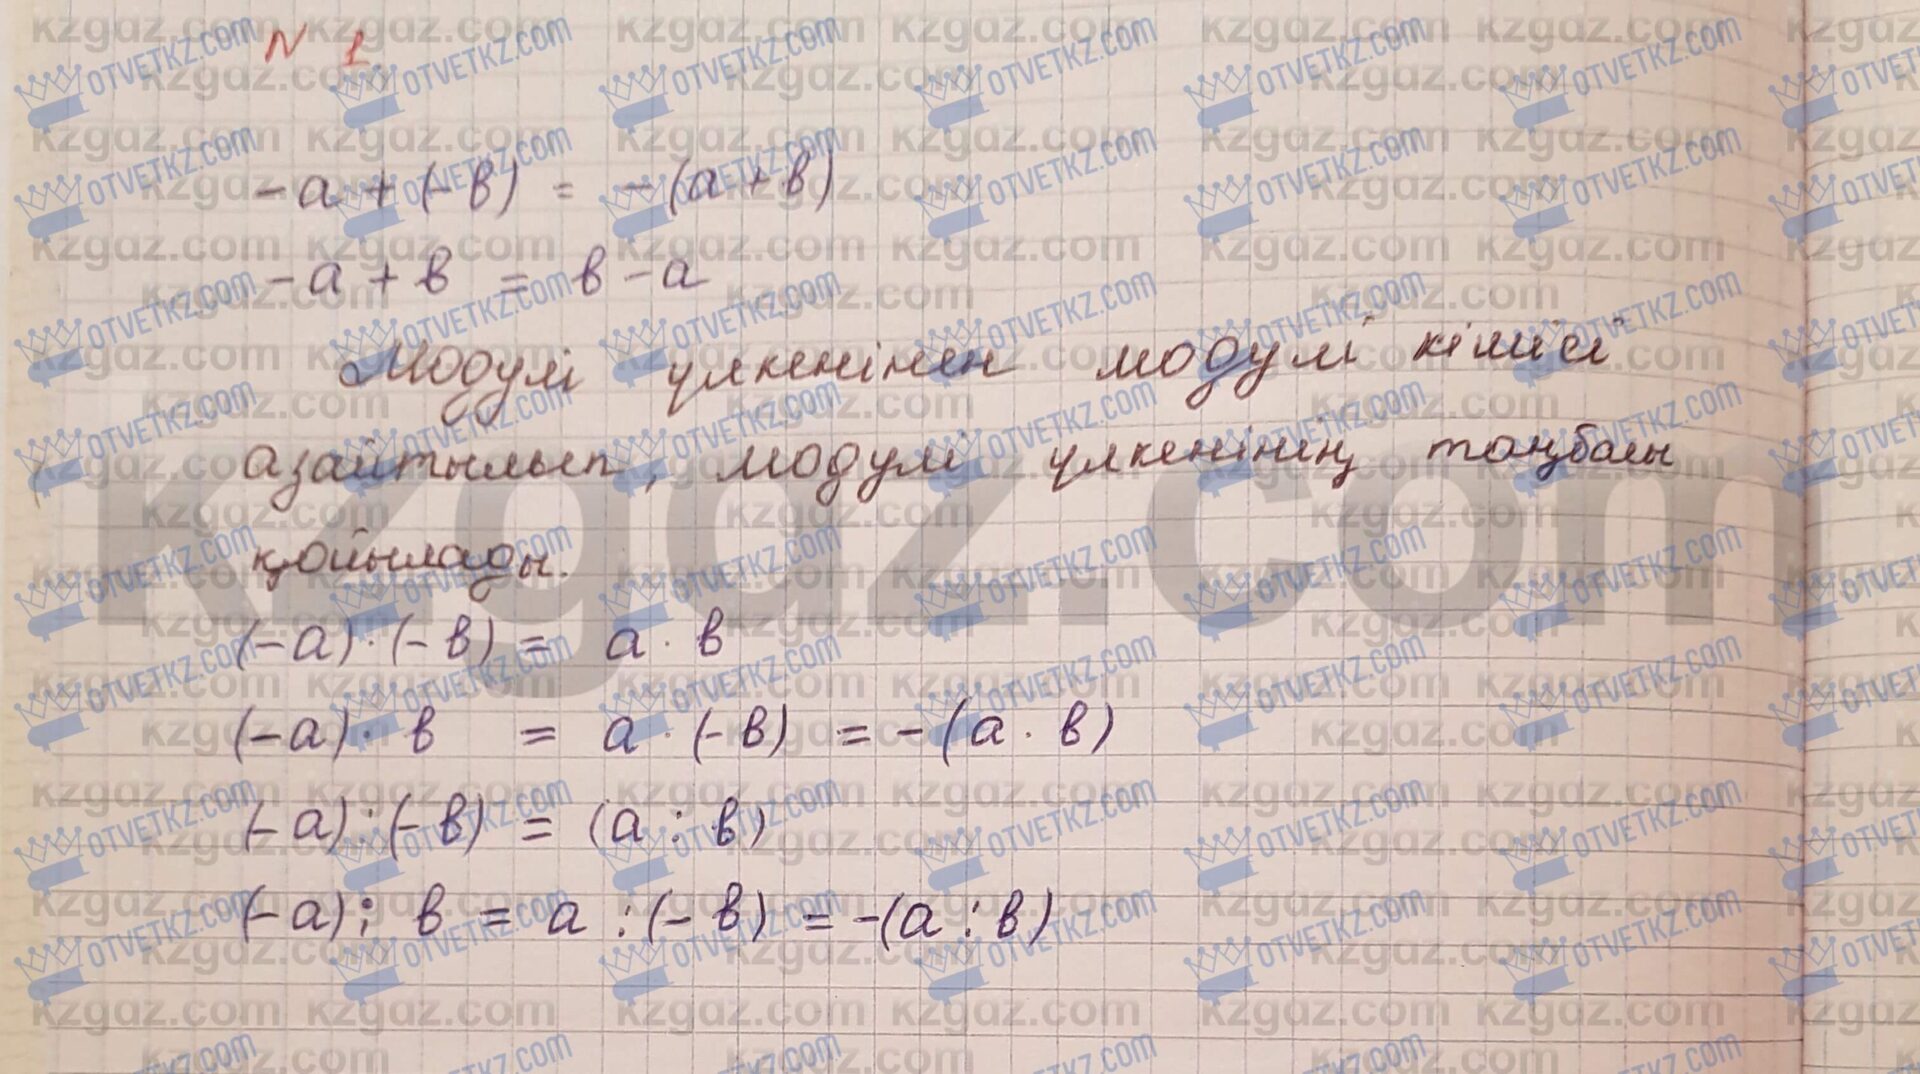 N 1
-a + (-в) = -(a + в)
-a + в = в - a
Модулі үлкенінен модулі кішісі
азайтылып, модулі үлкенінің таңбасы
қойылады.
(-a) · (-в) = a · в
(-a) · в = a · (-в) = -(a · в)
(-a) : (-в) = (a : в)
(-a) : в = a : (-в) = -(a : в)
kzgaz.com
OTVETKZ.COM